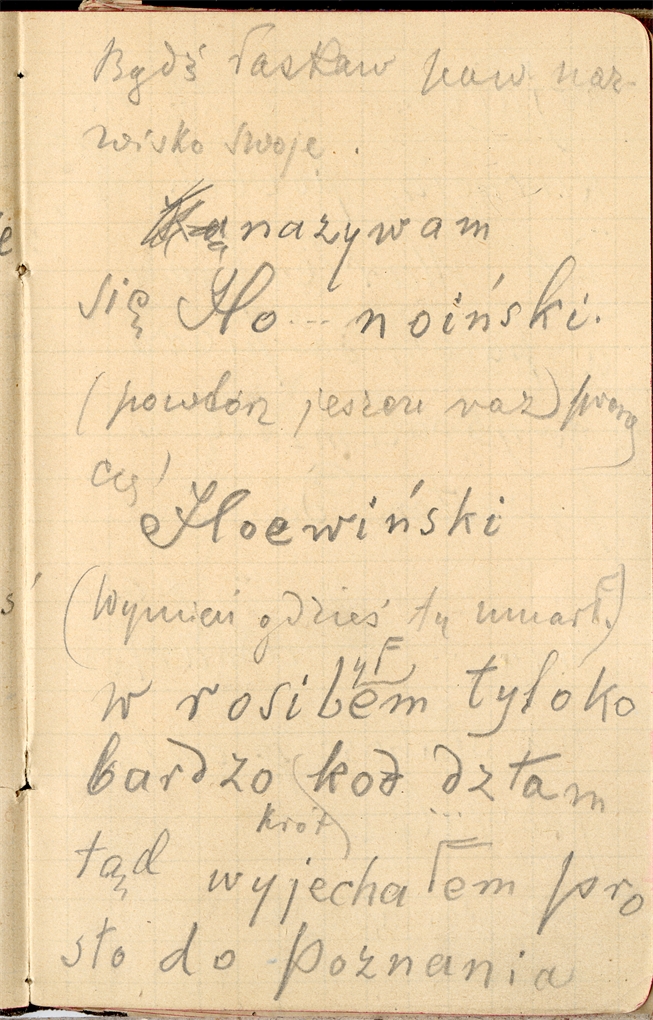 Bądź łaskaw pow. naz-
wisko swoje.
nazywam
się Ho... noiński.
(powtórz jeszcze raz) proszę
cię!
Hoewiński
(Wymień gdzieś ty umarł.)
w rosibem tyloko
ył
bardzo kod dztam
krót
tąd wyjechałem pro
sto do Poznania